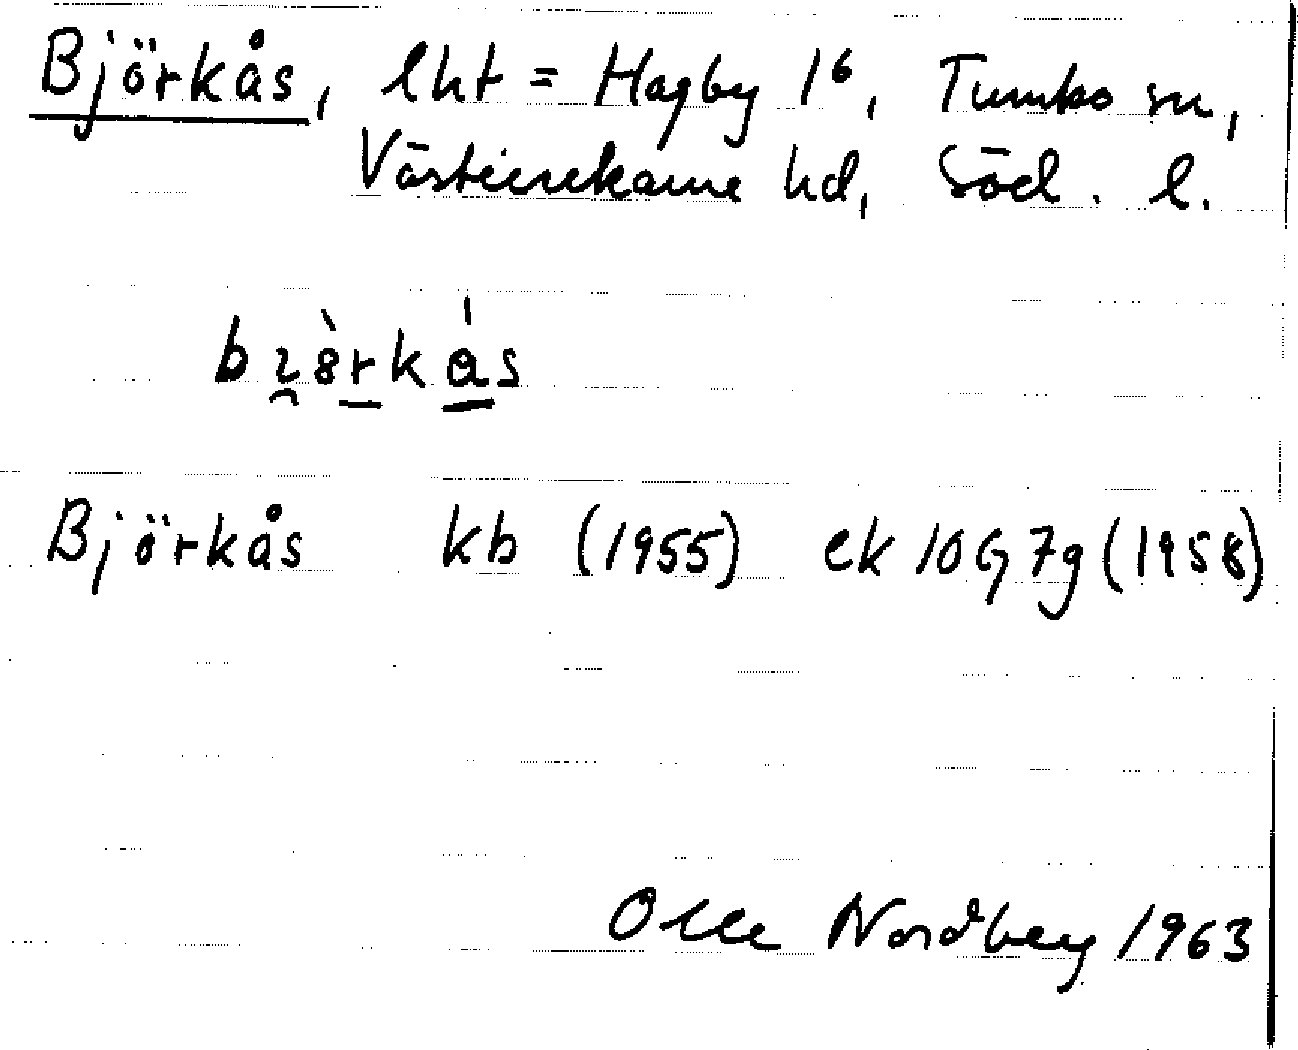 Björkås, lht = Hagby 1⁶, Tumbo sn,
Västerrekarne hd, Söd. l.
Björkås kb (1955) ek 10G7g (1958)
Olle Nordberg 1963